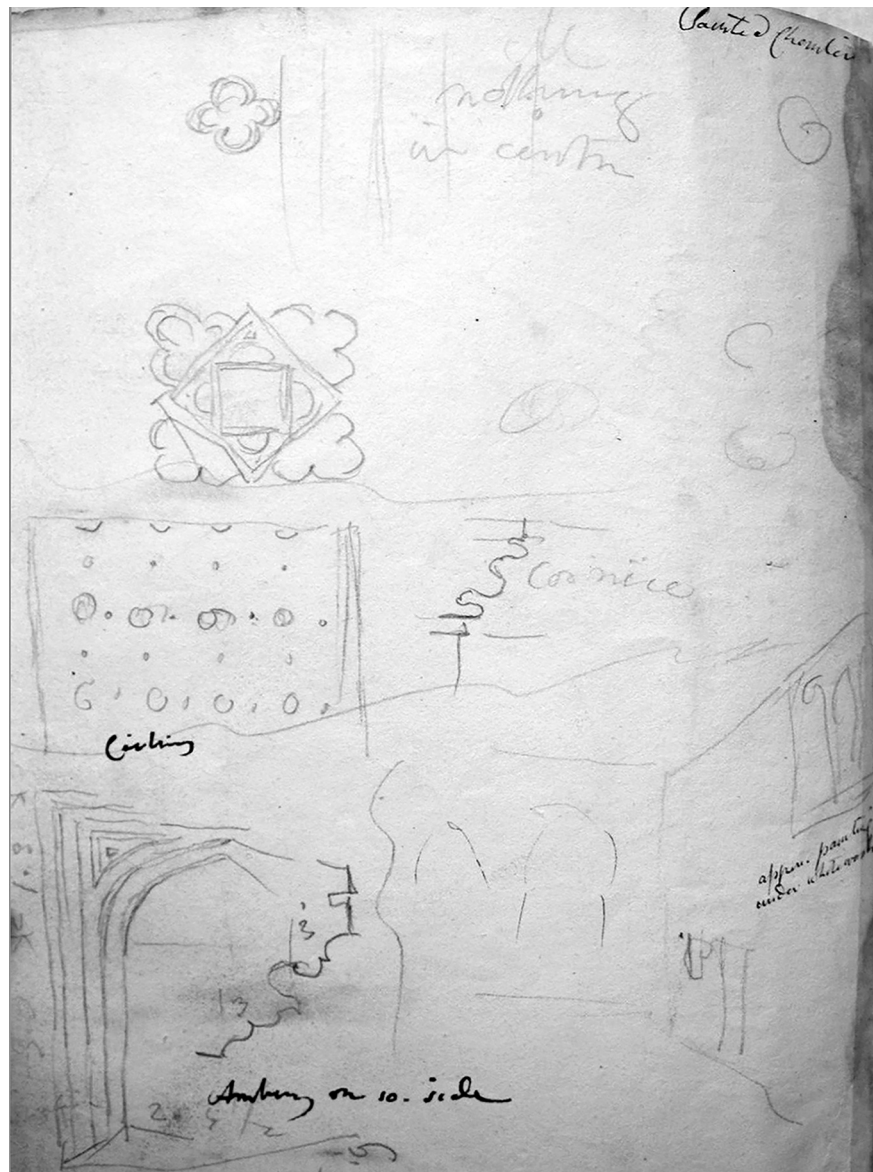 Painted Chamber
nothing
in centre
Cornice
Cieling
appce. painting
under whitewash
3
13
Ambury on so. side
2.